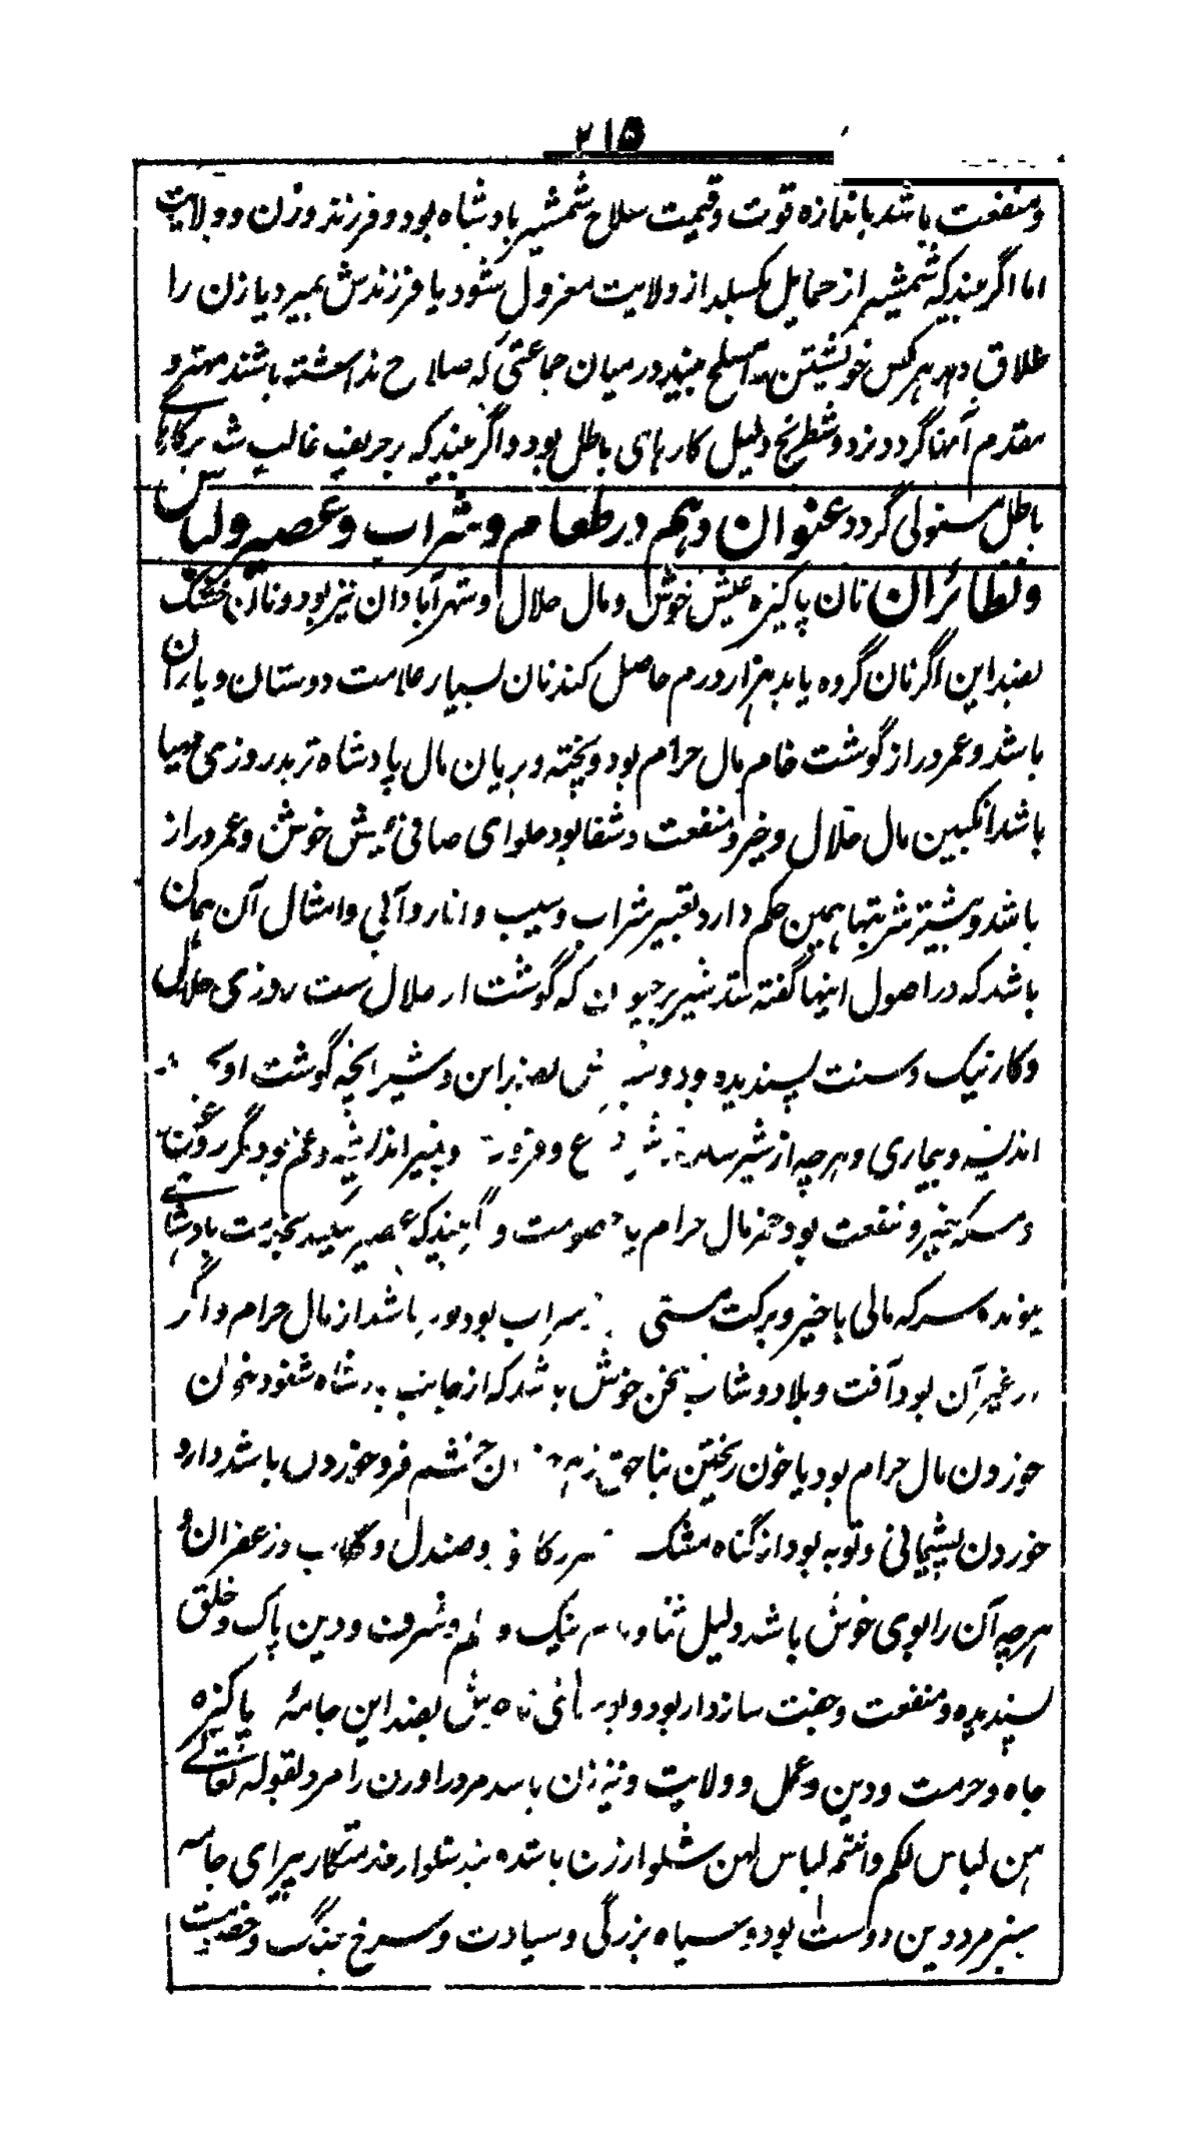 ۲۱۵
ومنفعت باشد باندازه قوت وقیمت سلاح شمشیر بادشاه بود و فرزند وزن و ولایت
اما اگر بیند که شمشیر از حمایل بگسلد از ولایت معزول شود یا فرزندش بمیرد یا زن را
طلاق دهد هر کس خویشتن مسلح بیند در میان جماعتی که صلاح نداشته باشند مهتر و
مقدم آنها گردد نرد و شطرنج دلیل کارهای باطل بود و اگر بیند که بر حریف غالب شد برکارهای
باطل مستولی گردد عنوان دهم در طعام و شراب و عصیر و لباس
ونظائر ان نان پاکیزه عیش خوش و مال حلال و شهر آبادان نیز بود و نان خشک
بضد این اگر نان گرده یابد هزار درم حاصل کند نان بسیار علامت دوستان و یاران
باشد و عمر دراز گوشت خام مال حرام بود و پخته و بریان مال پادشاه تربد روزی مهیا
باشد انگبین مال حلال و خیر و منفعت و شفا بود حلوای صافی عیش خوش و عمر دراز
باشد و بیشتر شربتها همین حکم دارد تعبیر شراب و سیب و انار و آبی و امثال آن همان
باشد که در اصول اینها گفته شد شیر هر حیوان که گوشت او حلال ست روزی حلال
وکار نیک و سنت پسندیده بود و بضد این و شیر انچه گوشت او
اندیشه و بیماری و هرچه از شیر سازند و پنیر اندیشه و غم بود مگر روغن
و مسکه خیر و منفعت بود خمر مال حرام یا خصومت و اگر بیند که عصیر میگیرد بخدمت بادشاهی
پیوندد سرکه مالی با خیر و برکت مستی شراب بود باشد از مال حرام و اگر
از غیر آن بود آفت و بلا دوشاب سخن خوش باشد که از جانب پادشاه شنود خون
خوردن مال حرام بود یا خون ریختن بناحق خشم فرو خوردن باشد دارو
خوردن پشیمانی و توبه بود از گناه مشک کافور و صندل و گلاب و زعفران و
هرچه آن را بوی خوش باشد دلیل ثنا و نام نیک و علم و شرف و دین پاک و خلق
پسندیده و منفعت و جفت سازدار بود و بوهای ناخوش بضد این جامهٔ پاکیزه
جاه و حرمت و دین و عمل و ولایت و نیز زن باشد مرد را و زن را مرد لقوله تعالی
هن لباس لکم وانتم لباس لهن شلوار زن باشد بند شلوار خدمتگار پیرای جامه
سبز مرد دین دوست بود و سیاه بزرگی و سیادت و سرخ جنگ و خصومت